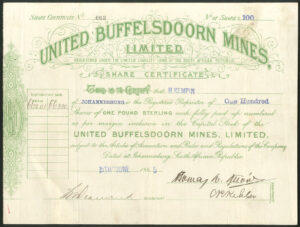 Share Certificate No. 662 No. of Shares 100
UNITED BUFFELSDOORN MINES,
LIMITED.
REGISTERED UNDER THE LIMITED LIABILITY LAWS OF THE SOUTH AFRICAN REPUBLIC
SHARE CERTIFICATE
This is to Certify that H. KEMPIN
of JOHANNESBURG is the Registered Proprietor of One Hundred
Shares of ONE POUND STERLING each fully paid up numbered
as per margin inclusive in the Capital Stock of the
UNITED BUFFELSDOORN MINES, LIMITED,
subject to the Articles of Association and Rules and Regulations of the Company
Dated at Johannesburg, South African Republic
JUNE 1895